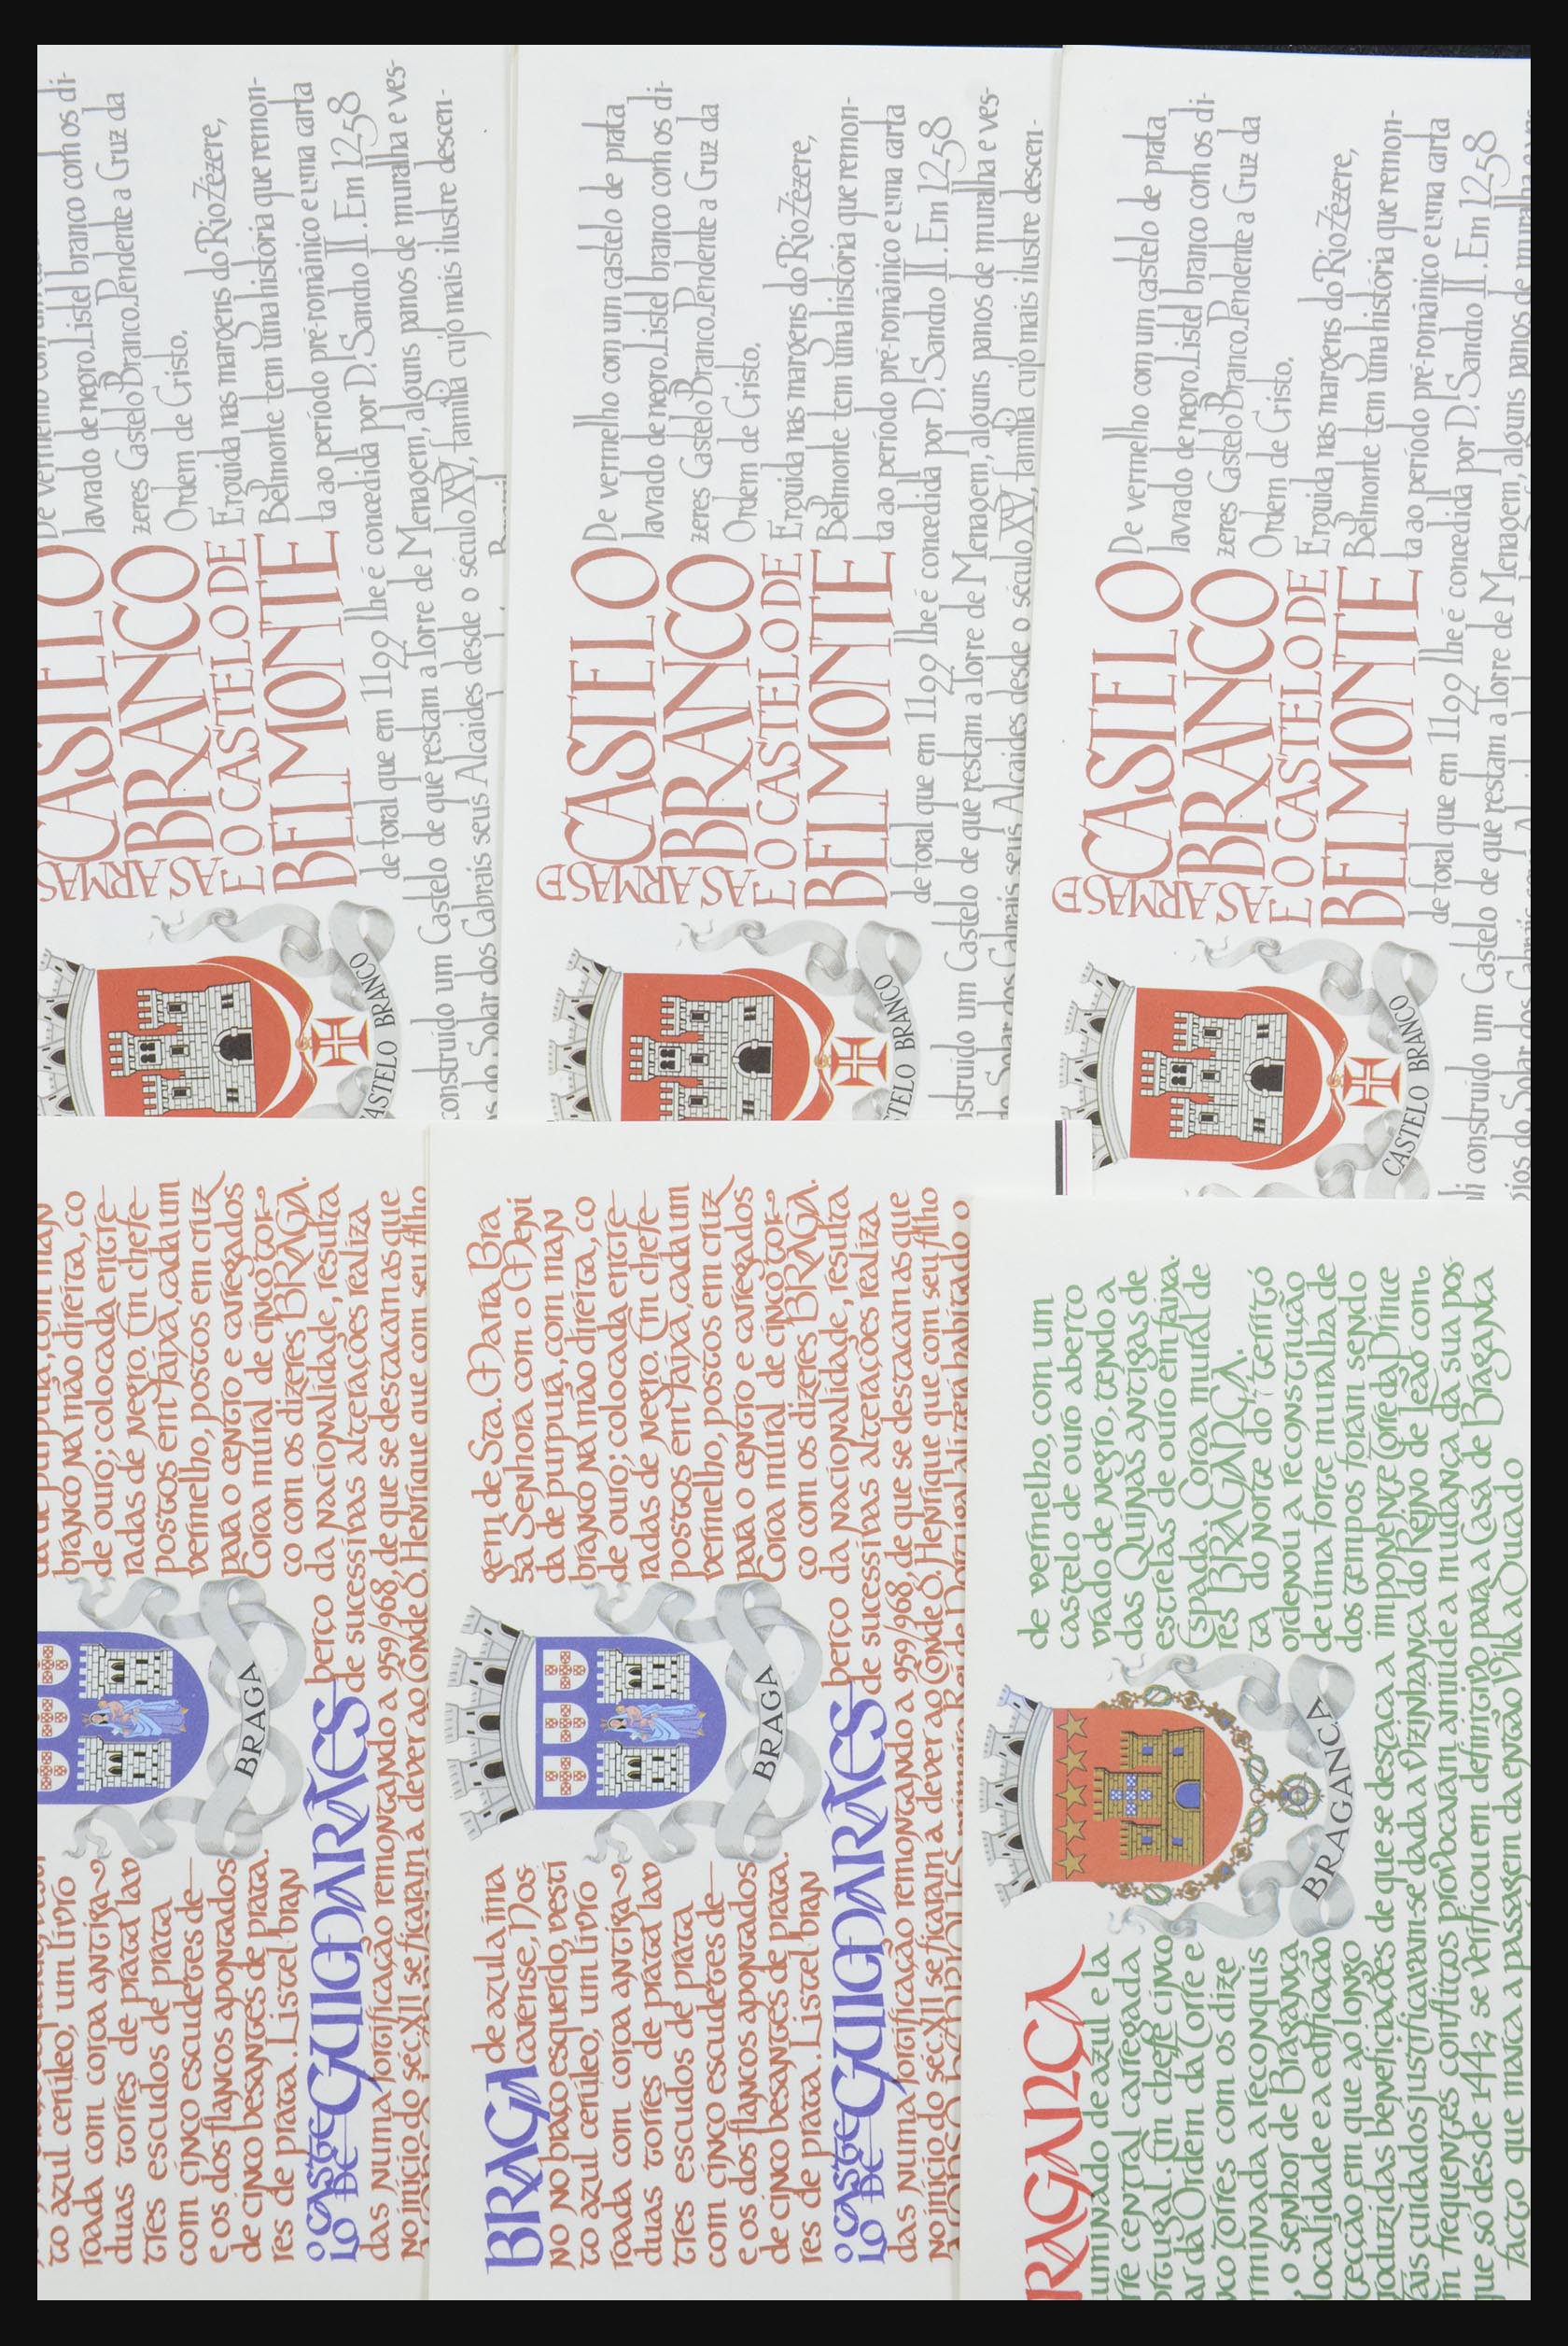 lavrado de negro. Listel branco com os di-
zeres Castelo Branco. Pendente a Cruz da
Ordem de Cristo.
CASTELO
BRANCO
AS ARMAS
E O CASTELO DE
BELMONTE
Erguida nas margens do Rio Zêzere,
Belmonte tem uma história que remon-
ta ao período pré-românico e uma carta
de foral que em 1199 lhe é concedida por D. Sancho II. Em 1258
construído um Castelo de que restam a Torre de Menagem, alguns panos de muralha e ves-
do Solar dos Cabrais seus Alcaides desde o século XV, família cujo mais ilustre descen-
CASTELO BRANCO
AS ARMAS DE
CASTELO
BRANCO
E O CASTELO DE
BELMONTE
De vermelho com um castelo de prata
lavrado de negro. Listel branco com os di-
zeres Castelo Branco. Pendente a Cruz da
Ordem de Cristo.
Erguida nas margens do Rio Zêzere,
Belmonte tem uma história que remon-
ta ao período pré-românico e uma carta
de foral que em 1199 lhe é concedida por D. Sancho II. Em 1258
construído um Castelo de que restam a Torre de Menagem, alguns panos de muralha e ves-
do Solar dos Cabrais seus Alcaides desde o século XV, família cujo mais ilustre descen-
CASTELO BRANCO
AS ARMAS DE
CASTELO
BRANCO
E O CASTELO DE
BELMONTE
De vermelho com um castelo de prata
lavrado de negro. Listel branco com os di-
zeres Castelo Branco. Pendente a Cruz da
Ordem de Cristo.
Erguida nas margens do Rio Zêzere,
Belmonte tem uma história que remon-
ta ao período pré-românico e uma carta
de foral que em 1199 lhe é concedida por D. Sancho II. Em 1258
li construído um Castelo de que restam a Torre de Menagem, alguns panos de muralha e ves-
CASTELO BRANCO
to azul cerúleo, um livro
roada com coroa antiga
duas torres de prata lav
três escudos de prata
com cinco escudetes de
e os dos flancos apontados
de cinco besantes de prata.
res de prata. Listel bran
branco na mão direita, co
de ouro; colocada entre
radas de negro. Em chefe
postos em faixa, cada um
vermelho, postos em cruz
para o centro e carregados
Coroa mural de cinco tor
co com os dizeres BRAGA.
BRAGA
O CASTE
LO DE GUIMARÃES
berço da nacionalidade, resulta
de sucessivas alterações realiza
das numa fortificação remontando a 959/968, de que se destacam as que
no início do séc. XII se ficaram a dever ao Conde D. Henrique que com seu filho
BRAGA de azul a ima
carense, Nos
no no braço esquerdo, vesti
to azul cerúleo, um livro
roada com coroa antiga
duas torres de prata lav
três escudos de prata
com cinco escudetes de
e os dos flancos apontados
de cinco besantes de prata.
res de prata. Listel bran
gem de Sta. Maria Bra
sa Senhora com o Meni
da de purpura, com man
branco na mão direita, co
de ouro; colocada entre
radas de negro. Em chefe
postos em faixa, cada um
vermelho, postos em cruz
para o centro e carregados
Coroa mural de cinco tor
co com os dizeres BRAGA.
BRAGA
O CASTE
LO DE GUIMARÃES
berço da nacionalidade, resulta
de sucessivas alterações realiza
das numa fortificação remontando a 959/968, de que se destacam as que
no início do séc. XII se ficaram a dever ao Conde D. Henrique que com seu filho
RAGANÇA
uminado de azul e la
rre central carregada
ortugal. Em chefe cinco
ar da Ordem da Torre e
nco Torres com os dize
rminada a reconquis
o senhor de Bragança
localidade e a edificação
tecção em que ao longo
de vermelho, com um
castelo de ouro aberto
vrado de negro, tendo a
das Quinas antigas de
estrelas de ouro em faixa.
Espada. Coroa mural de
res BRAGANÇA.
ta do Norte do territó
ordenou a reconstrução
de uma forte muralha de
dos tempos foram sendo
BRAGANÇA
roduzidas beneficiações de que se destaca a imponente Torre da Prince
tais cuidados justificavam-se dada a vizinhança do Reino de Leão com
m frequentes conflitos provocaram amiude a mudança da sua pos-
que só desde 1442 se verificou em definitivo para a Casa de Bragança
facto que marca a passagem da então Vila a Ducado